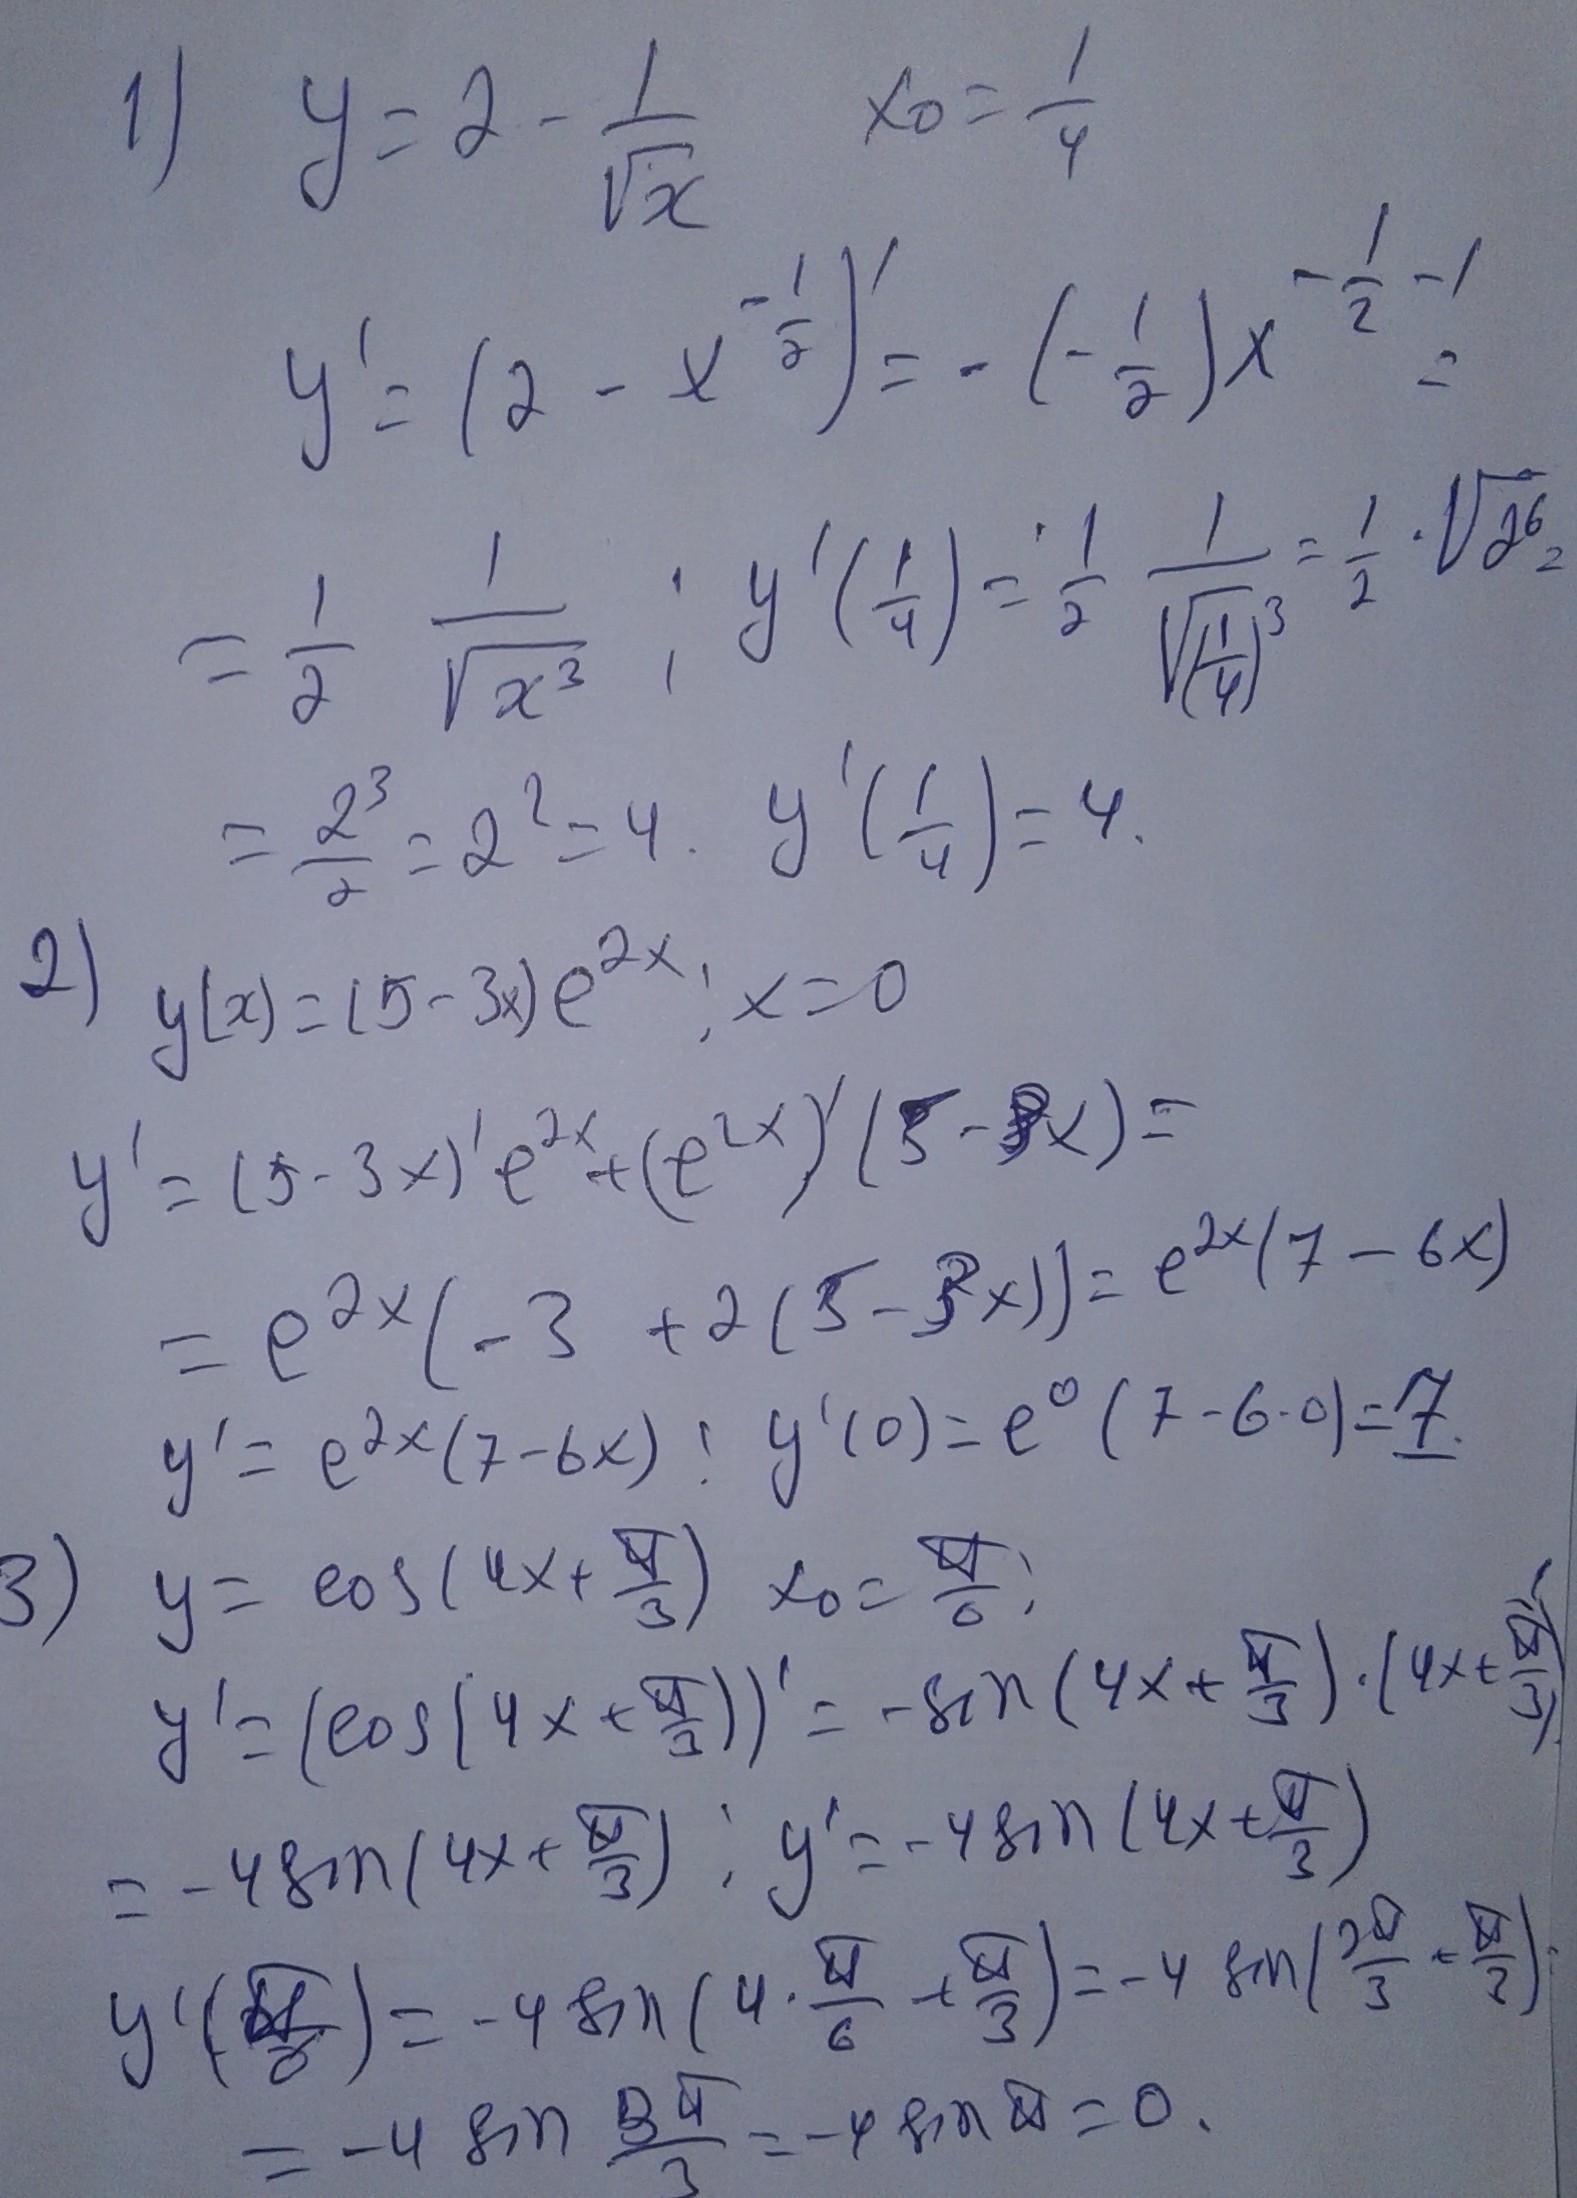 1) y = 2 - 1/√x x₀ = 1/4
y' = (2 - x^(-1/2))' = -(-1/2)x^(-1/2 - 1) =
= 1/2 1/√x³ ; y'(1/4) = 1/2 1/√(1/4)³ = 1/2 · √2⁶ =
= 2³/2 = 2² = 4. y'(1/4) = 4.
2) y(x) = (5-3x)e^(2x); x = 0
y' = (5-3x)'e^(2x) + (e^(2x))'(5-3x) =
= e^(2x)(-3 + 2(5-3x)) = e^(2x)(7-6x)
y' = e^(2x)(7-6x); y'(0) = e⁰(7-6·0) = 7.
3) y = cos(4x + π/3) x₀ = π/6;
y' = (cos(4x + π/3))' = -sin(4x + π/3)·(4x + π/3)'
= -4 sin(4x + π/3); y' = -4 sin(4x + π/3)
y'(π/6) = -4 sin(4·π/6 + π/3) = -4 sin(2π/3 + π/3) =
= -4 sin 3π/3 = -4 sin π = 0.